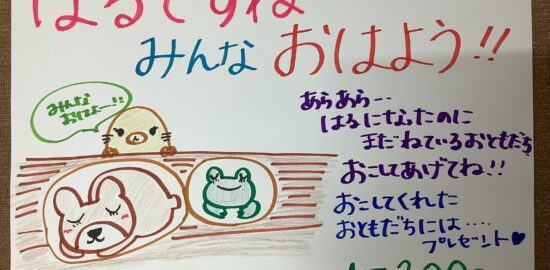 はるですね
みんな おはよう!!
みんな
おはよー!!
あらあら…
はるになったのに
まだねているおともだち
おこしてあげてね!!
おこしてくれた
おともだちには‥‥
プレゼント♥